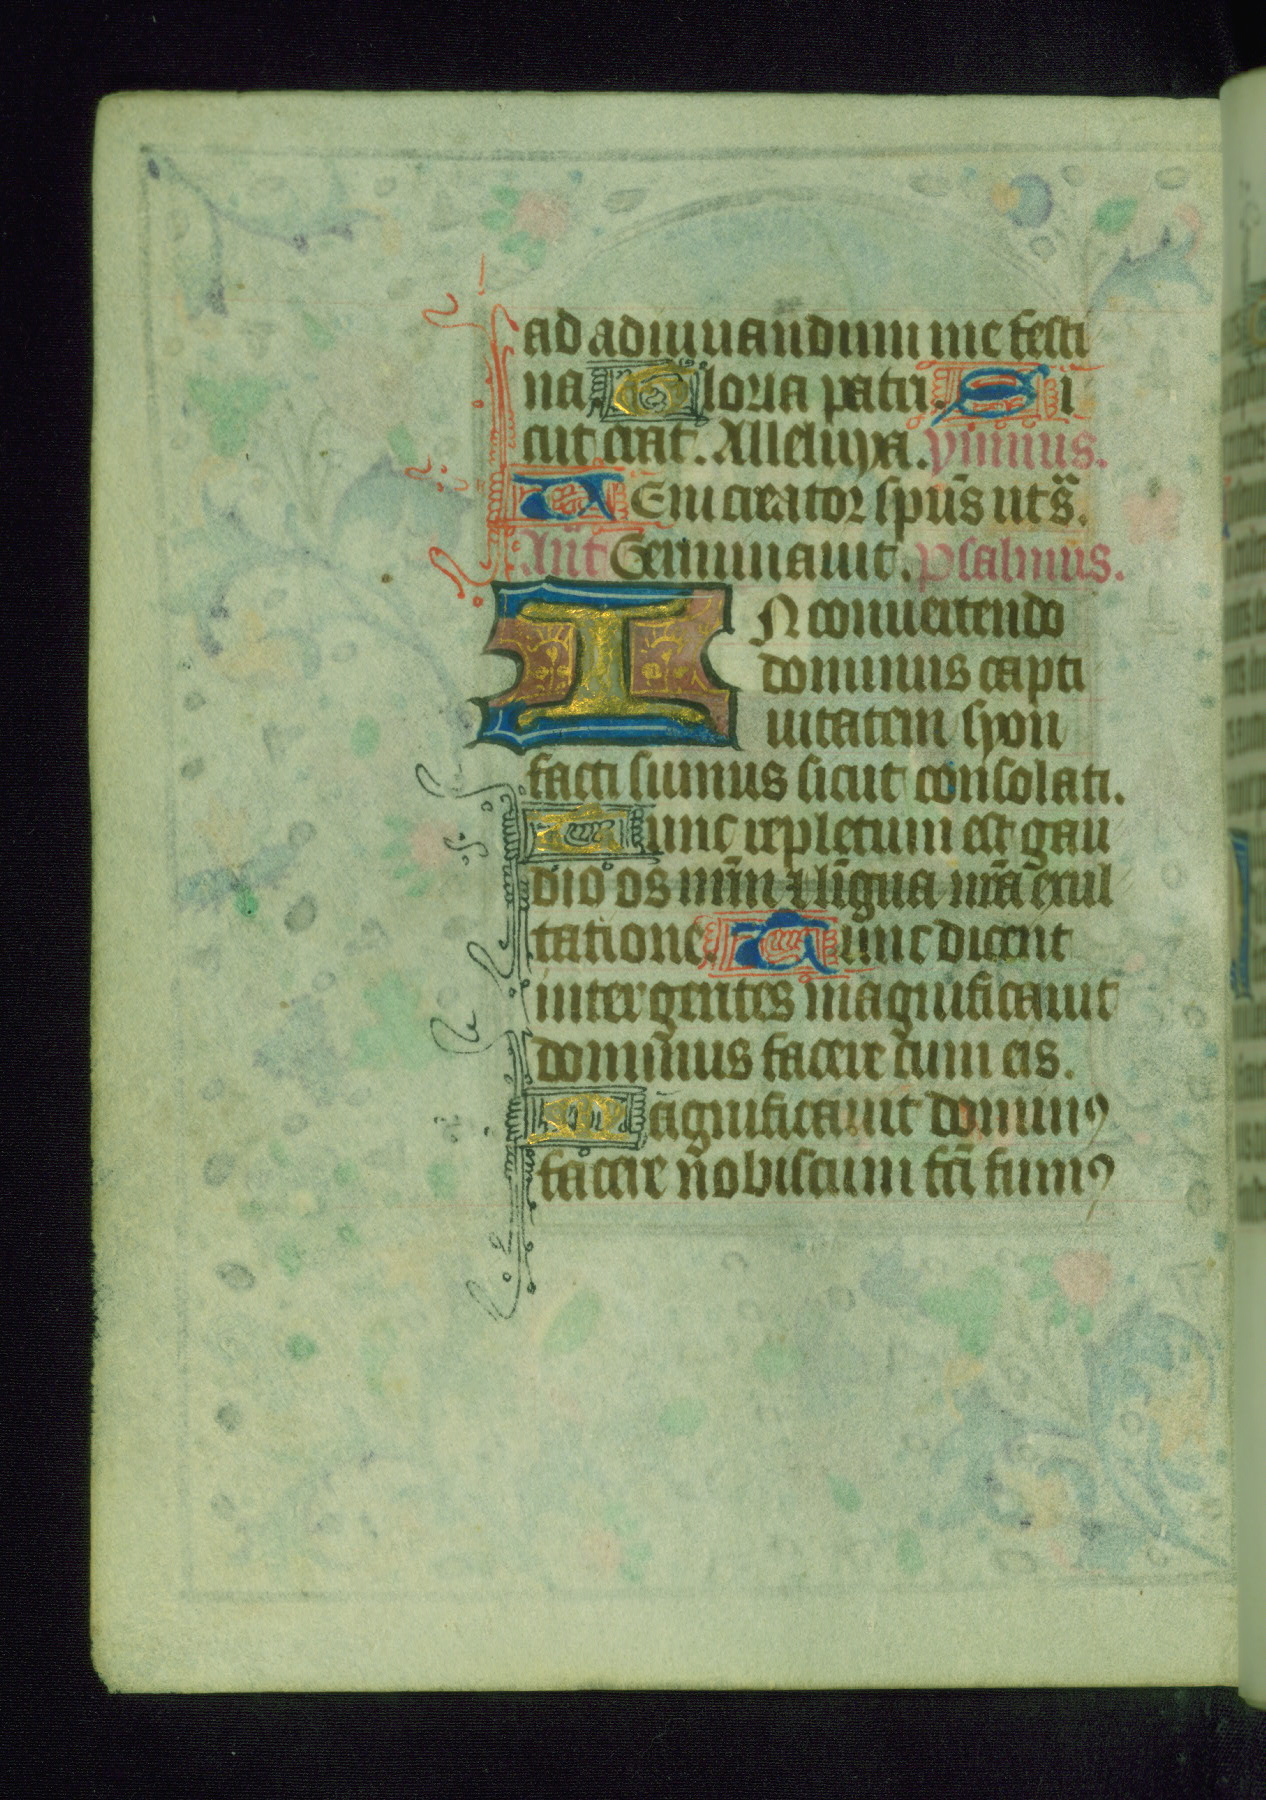 ad adiuuandum me festi
na. Gloria patri. Si
cut erat. Alleluya. ymnus.
VEni creator spūs uts̄.
Ant̄ Germinauit. psalmus.
IN conuertendo
dominus capti
uitatem syon
facti sumus sicut consolati.
Tunc repletum est gau
dio os nr̄m ⁊ līgua nr̄a exul
tatione. Tunc dicent
inter gentes magnificauit
dominus facere cum eis.
Magnificauit dominꝰ
facere nobiscum fc̄i sumꝰ